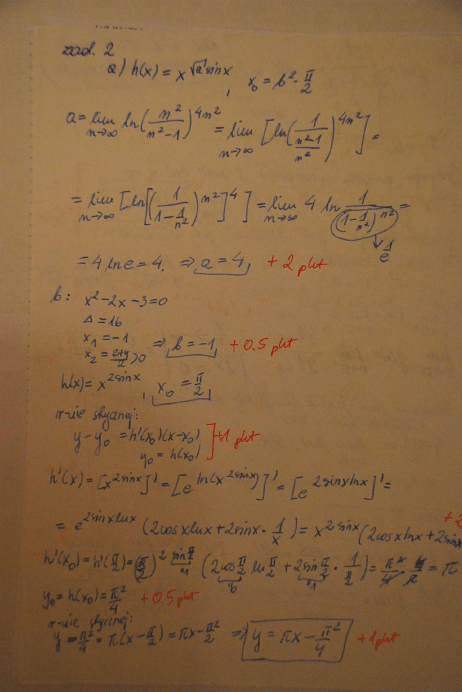 zad. 2
a) h(x) = x^(√a sinx), x₀ = b² · π/2
a = lim n→∞ ln(n²/(n²-1))^(4n²) = lim n→∞ [ln(1/((n²-1)/n²))^(4n²)] =
= lim n→∞ [ln[(1/(1-1/n²))^(n²)]^4] = lim n→∞ 4 ln 1/(1-1/n²)^(n²) =
→ 1/e
= 4 ln e = 4. ⇒ a = 4, + 2 pkt
b: x² - 2x - 3 = 0
Δ = 16
x₁ = -1 ⇒ b = -1, + 0.5 pkt
x₂ = (2+4)/2 > 0
h(x) = x^(2sinx), x₀ = π/2
r-nie stycznej:
y - y₀ = h'(x₀)(x-x₀) +1 pkt
y₀ = h(x₀)
h'(x) = [x^(2sinx)]' = [e^(ln(x^(2sinx)))]' = [e^(2sinx lnx)]' =
= e^(2sinx lnx) (2cosx lnx + 2sinx · 1/x) = x^(2sinx) (2cosx lnx + 2sinx
h'(x₀) = h'(π/2) = (π/2)^(2 sin π/2) (2cos π/2 ln π/2 + 2sin π/2 · 1/(π/2)) = = π
y₀ = h(x₀) = π²/4 + 0.5 pkt
r-nie stycznej:
y - π²/4 = π(x - π/2) = πx - π²/2 ⇒ y = πx - π²/4 + 1 pkt